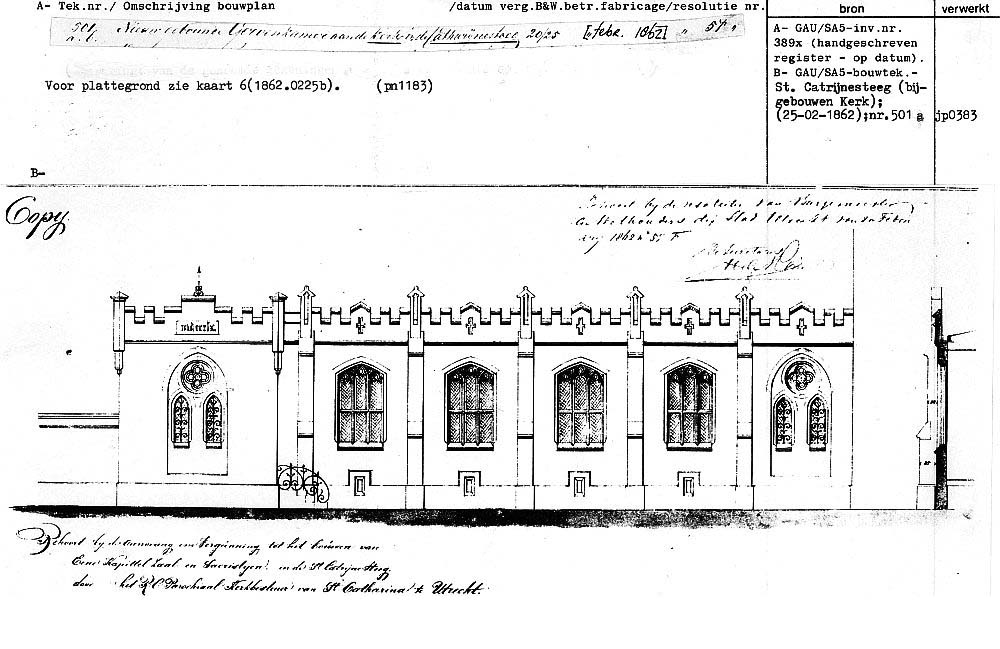 A- Tek.nr./ Omschrijving bouwplan /datum verg.B&W.betr.fabricage/resolutie nr. bron verwerkt
501 a.b. Nieuwebouw aan de Catharijnesteeg 20/25 [febr. 1862] " 57 "
A- GAU/SA5-inv.nr.
389x (handgeschreven
register - op datum).
B- GAU/SA5-bouwtek.-
St. Catrijnesteeg (bij-
gebouwen Kerk);
(25-02-1862);nr.501 a jp0383
Voor plattegrond zie kaart 6(1862.0225b). (pn1183)
B-
Copy.
Behoort bij de resolutie van Burgemeester
en Wethouders der Stad Utrecht van
1862 n° 57 F
De Secretaris
Behoort bij de Aanvraag om Vergunning tot het bouwen van
Eene Kapittel Zaal en Sacristyen in de St Catrijne Steeg
door het R.C. Parochiaal Kerkbestuur van St Catharina te Utrecht.